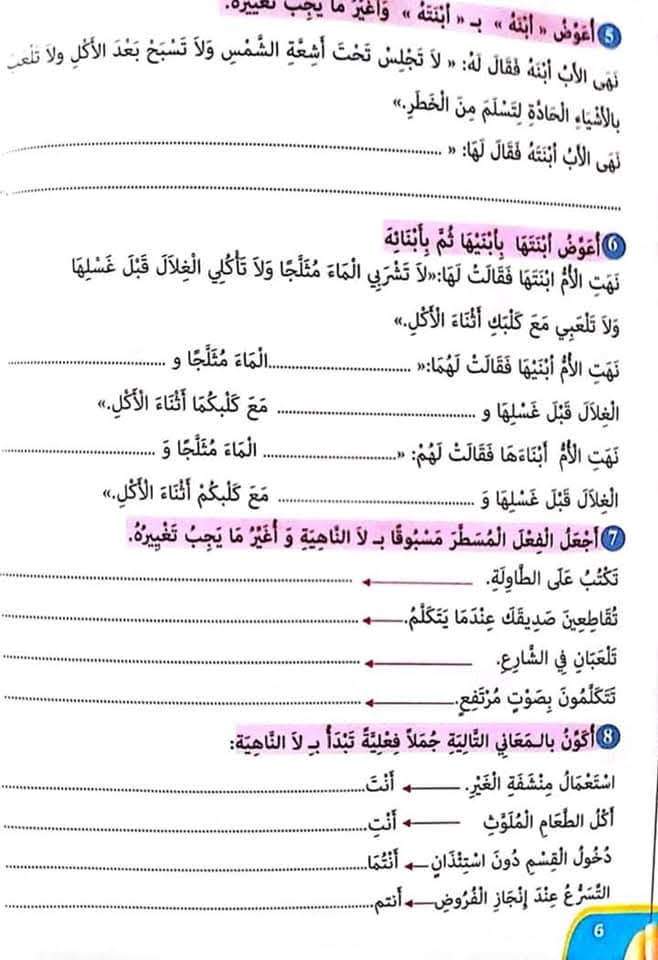 5 أُعَوِّضُ « اِبْنَهُ » بـ « اِبْنَتَهُ » وَأُغَيِّرُ مَا يَجِبُ تَغْيِيرُهُ.
نَهَى الأَبُ اُبْنَهُ فَقَالَ لَهُ: « لاَ تَجْلِسْ تَحْتَ أَشِعَّةِ الشَّمْسِ وَلاَ تَسْبَحْ بَعْدَ الأَكْلِ ولاَ تَلْعَبْ
بِالأَشْيَاءِ الْحَادَّةِ لِتَسْلَمَ مِنَ الْخَطَرِ.»
نَهَى الأَبُ اُبْنَتَهُ فَقَالَ لَهَا: « ..........
..........
6 أُعَوِّضُ اُبْنَتَهَا بِاُبْنَيْهَا ثُمَّ بِأَبْنَائِهَ
نَهَتِ الْأُمُّ ابْنَتَهَا فَقَالَتْ لَهَا:«لاَ تَشْرَبِي الْمَاءَ مُثَلَّجًا وَلاَ تَأْكُلِي الْغِلاَلَ قَبْلَ غَسْلِهَا
وَلاَ تَلْعَبِي مَعَ كَلْبَكِ أَثْنَاءَ الْأَكْلِ.»
نَهَتِ الْأُمُّ اُبْنَيْهَا فَقَالَتْ لَهُمَا:« ..........الْمَاءَ مُثَلَّجًا و ..........
الْغِلاَلَ قَبْلَ غَسْلِهَا و .......... مَعَ كَلْبِكُمَا أَثْنَاءَ الْأَكْلِ.»
نَهَتِ الْأُمُّ أَبْنَاءَهَا فَقَالَتْ لَهُمْ: «.......... الْمَاءَ مُثَلَّجًا وَ ..........
الْغِلاَلَ قَبْلَ غَسْلِهَا وَ .......... مَعَ كَلْبِكُمْ أَثْنَاءَ الْأَكْلِ.»
7 أَجْعَلُ الْفِعْلَ الْمُسَطَّرَ مَسْبُوقًا بـ لاَ النَّاهِيَةِ وَ أُغَيِّرُ مَا يَجِبُ تَغْيِيرُهُ.
تَكْتُبُ عَلَى الطَّاوِلَةِ. ..........
تُقَاطِعِينَ صَدِيقَكَ عِنْدَمَا يَتَكَلَّمُ. ..........
تَلْعَبَانِ فِي الشَّارِعِ. ..........
تَتَكَلَّمُونَ بِصَوْتٍ مُرْتَفِعٍ. ..........
8 أُكَوِّنُ بالـمَعَانِي التَّالِيَةِ جُمَلاً فِعْلِيَّةً تَبْدَأُ بـِ لاَ النَّاهِيَة:
اسْتَعْمَالُ مِنْشَفَةِ الْغَيْرِ. أَنْتَ..........
أَكْلُ الطَّعَامِ الْمُلَوَّثِ أَنْتِ..........
دُخُولُ الْقِسْمِ دُونَ اسْتِئْذَانٍ أَنْتُمَا..........
التَّسَرُّعُ عِنْدَ إِنْجَازِ الْفُرُوضِ أنتم..........
6